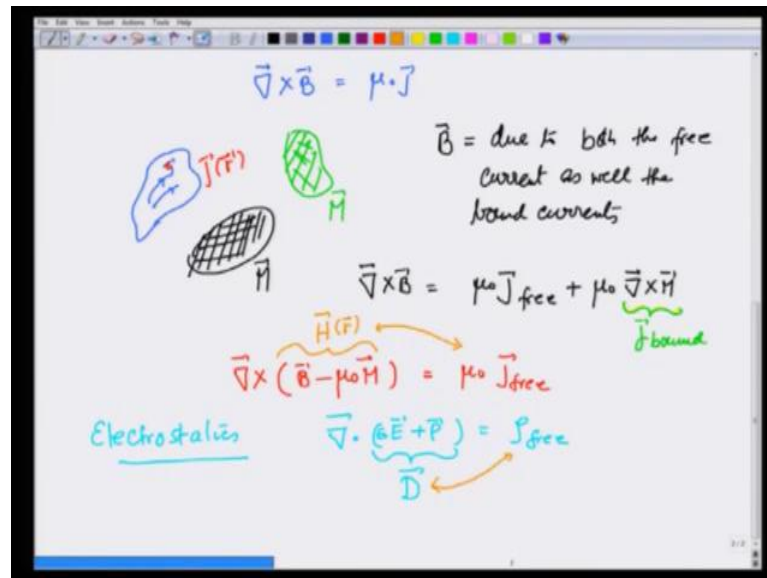 File Edit View Insert Actions Tools Help
∇⃗ × B⃗ = μ₀ J⃗
J⃗(r⃗')
M⃗
M⃗
B⃗ = due to both the free
current as well the
bound currents
∇⃗ × B⃗ = μ₀ J⃗free + μ₀ ∇⃗ × M⃗
J⃗bound
H⃗(r⃗)
∇⃗ × (B⃗ − μ₀M⃗) = μ₀ J⃗free
Electrostatics ∇⃗ · (ε₀E⃗ + P⃗) = ρfree
D⃗
2/2